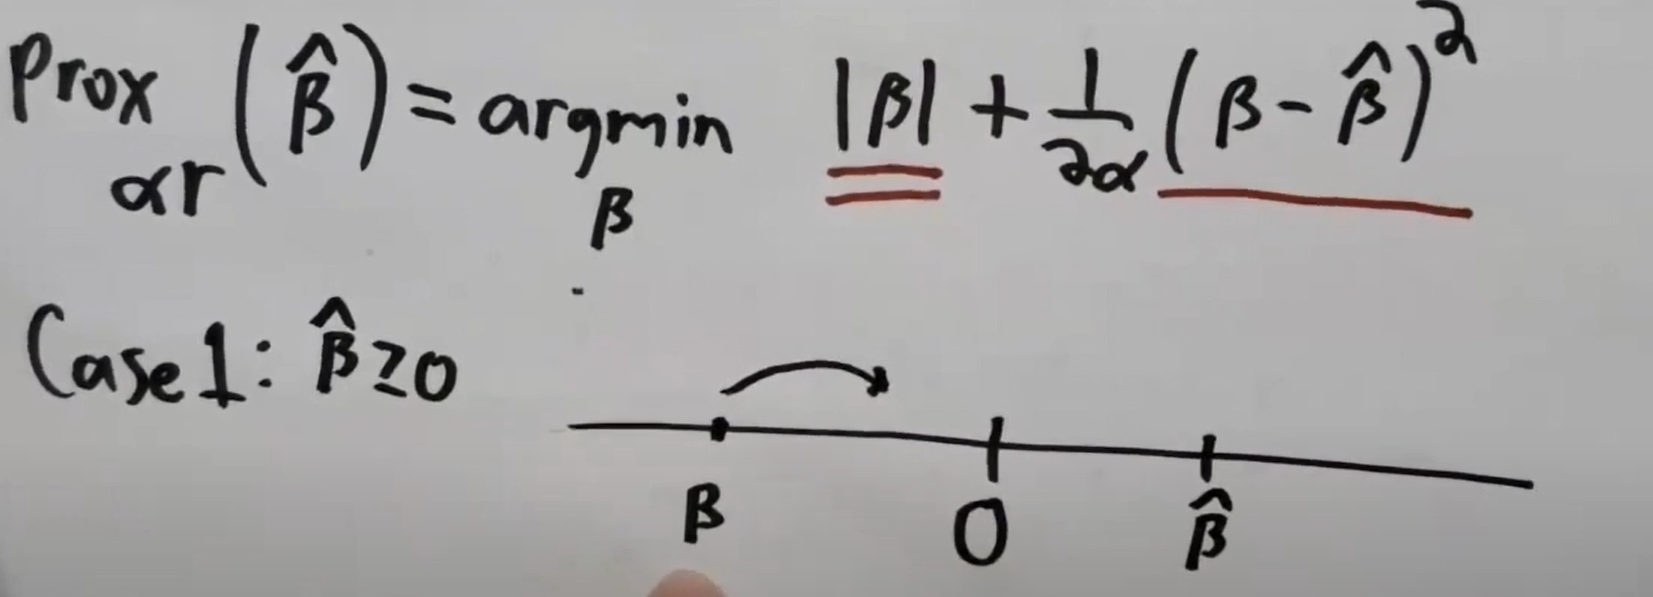 Prox_{αr}(β̂) = argmin_β |β| + 1/2α (β - β̂)²
Case 1: β̂ ≥ 0
β 0 β̂